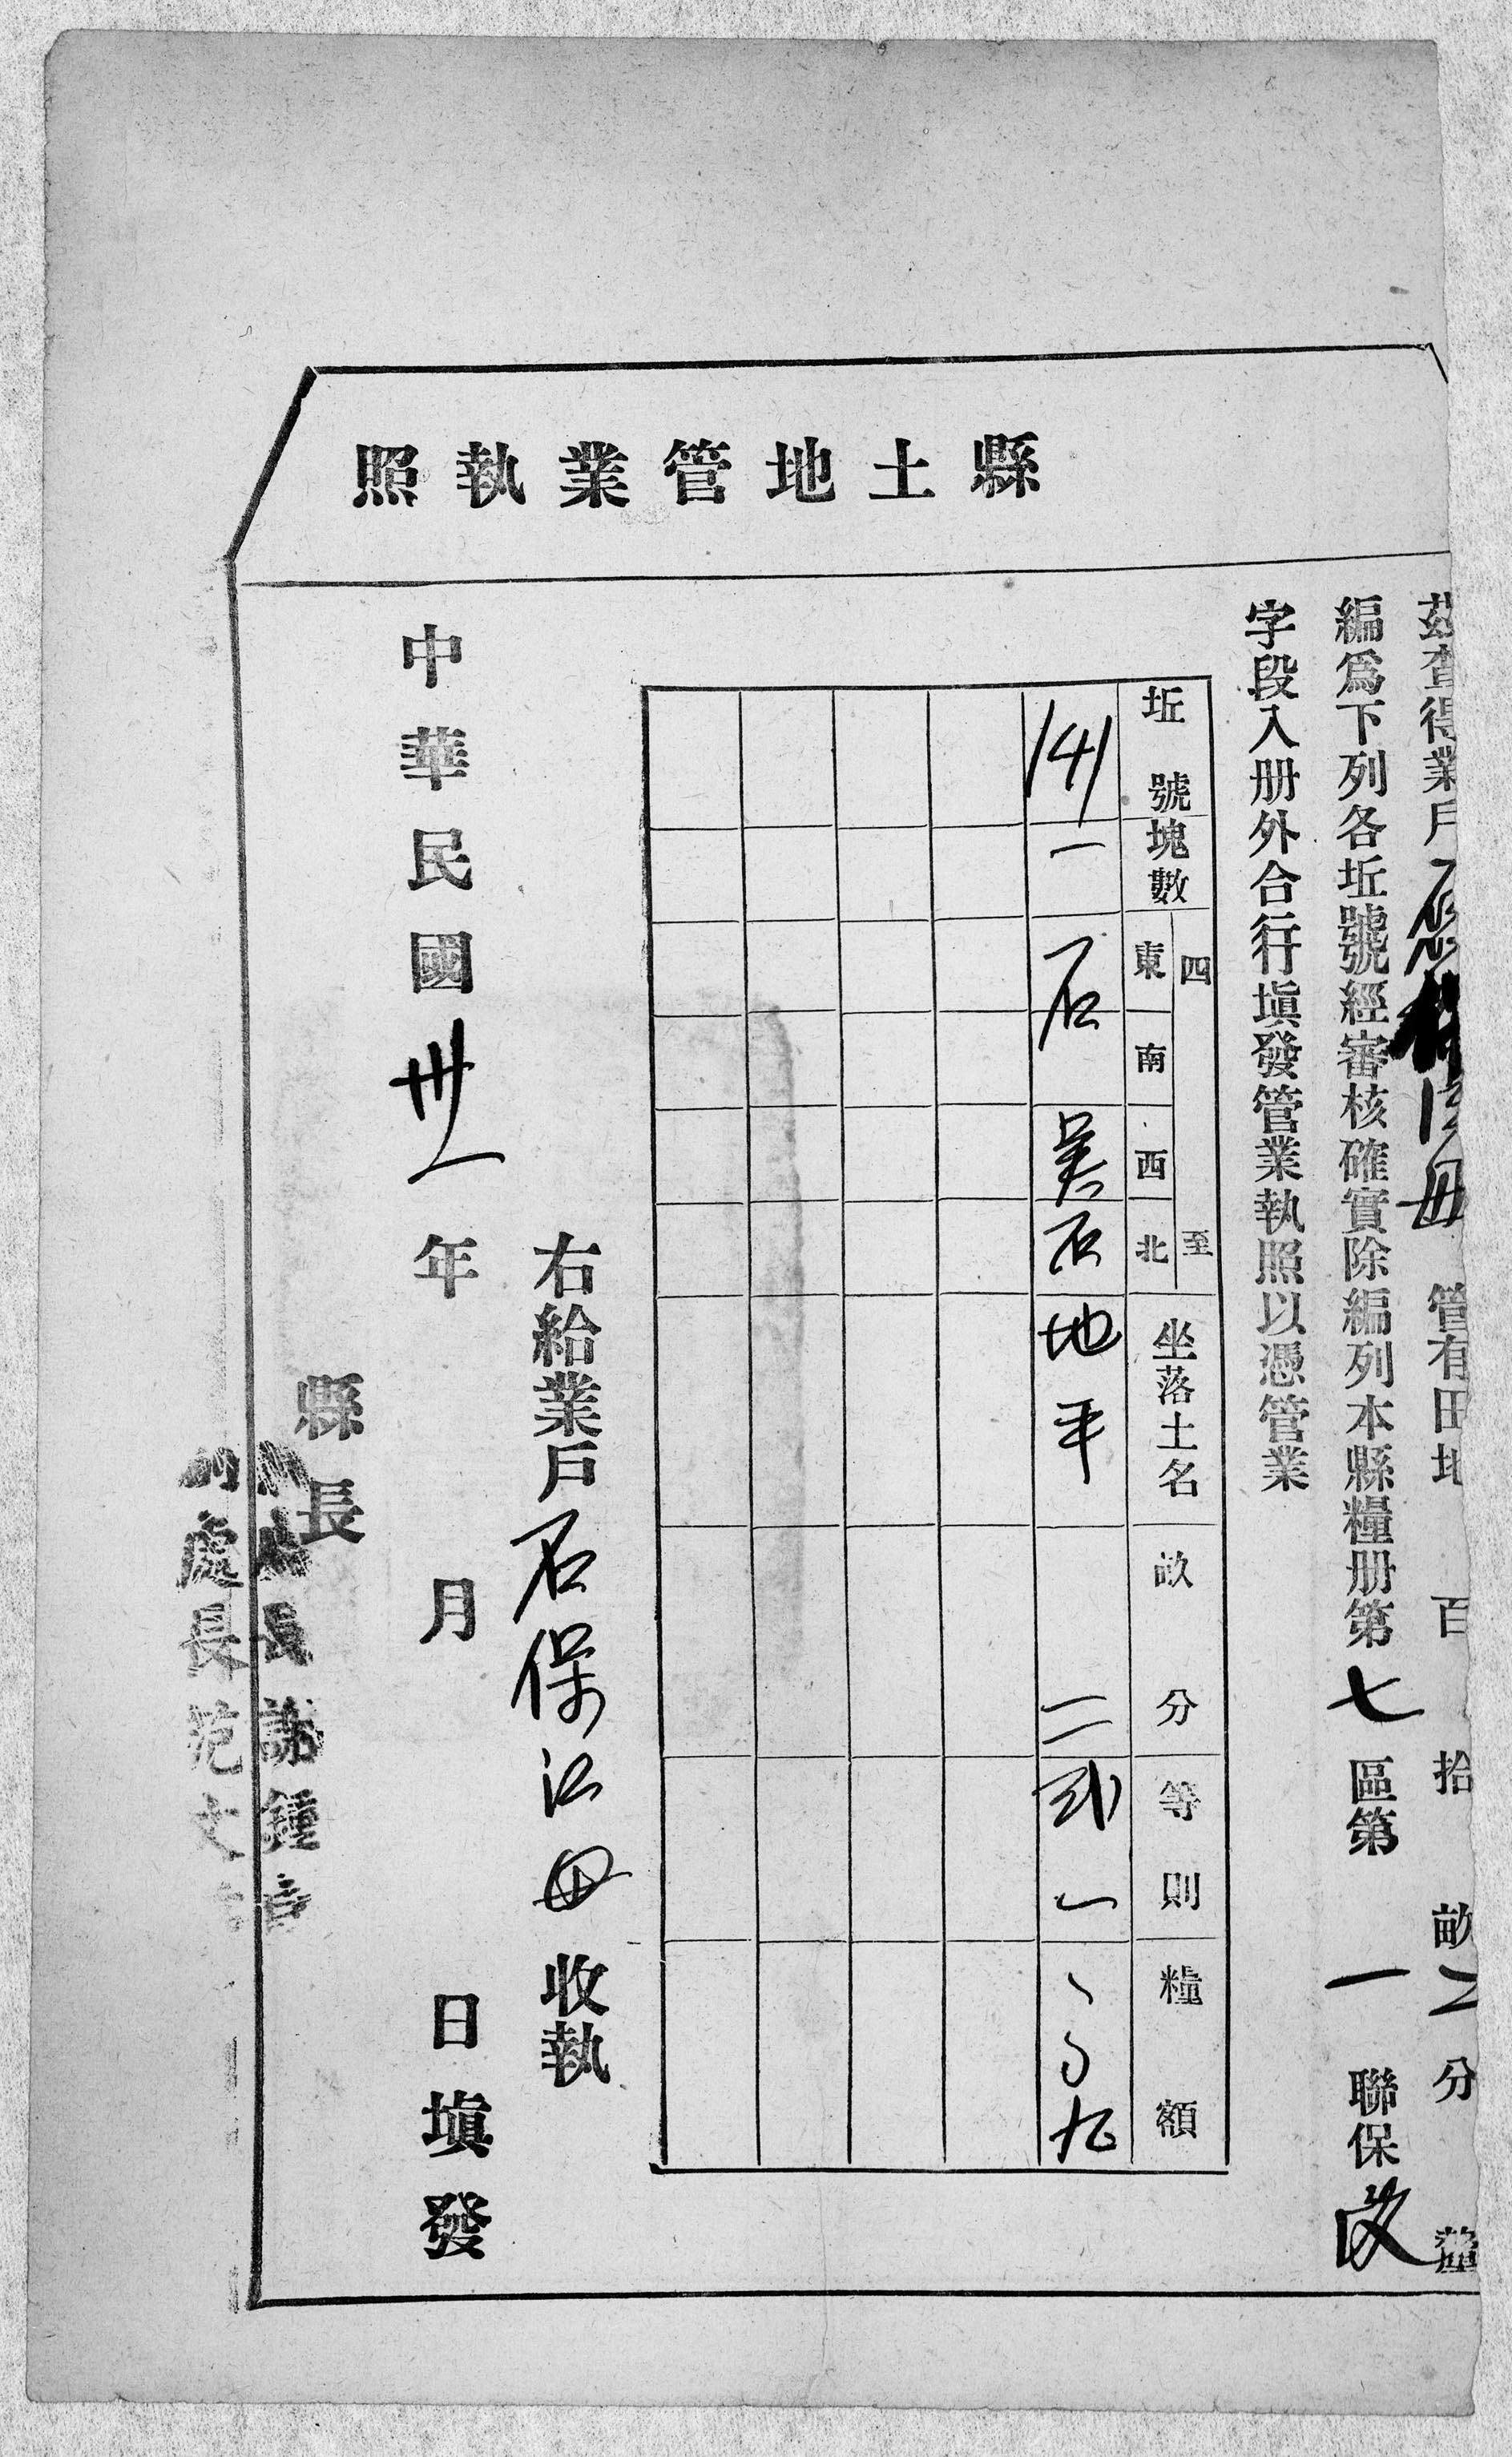 縣土地管業執照
茲查得業戶 管有田地 百 拾 畝 二 分
編爲下列各坵號經審核確實除編列本縣糧册第七區第一聯保
字段入册外合行塡發管業執照以憑管業
坵號 塊數 四至 東 南 西 北 坐落土名 畝 分 等則 糧額
141 一 石 吳 石 地平 二
右給業戶石保江母收執
中華民國卅一年 月 日塡發
縣長
長謝鍾
處長范文